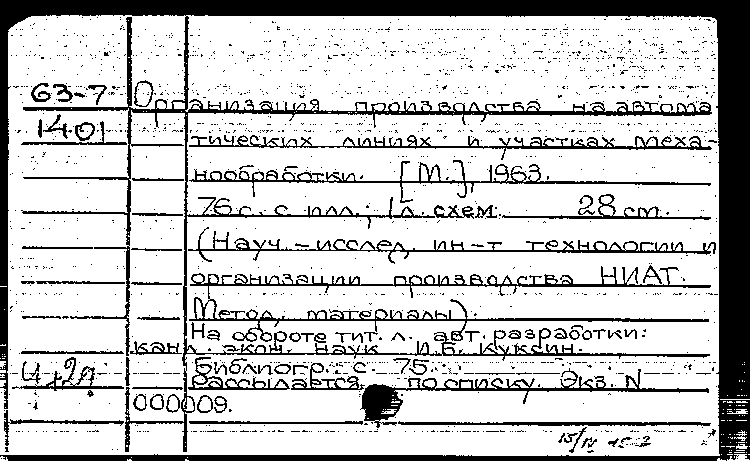 63-7 Организация производства на автома
1401 тических линиях и участках меха-
нообработки. [М.], 1963.
76 с. с илл.; 1 л. схем. 28 см.
(Науч.-исслед. ин-т технологии и
организации производства НИАТ.
Метод. материалы).
На обороте тит. л. авт. разработки:
канд. экон. наук И.Б. Куксин.
Библиогр.: с. 75.
Рассылается по списку. Экз. N
000009.
15/IV